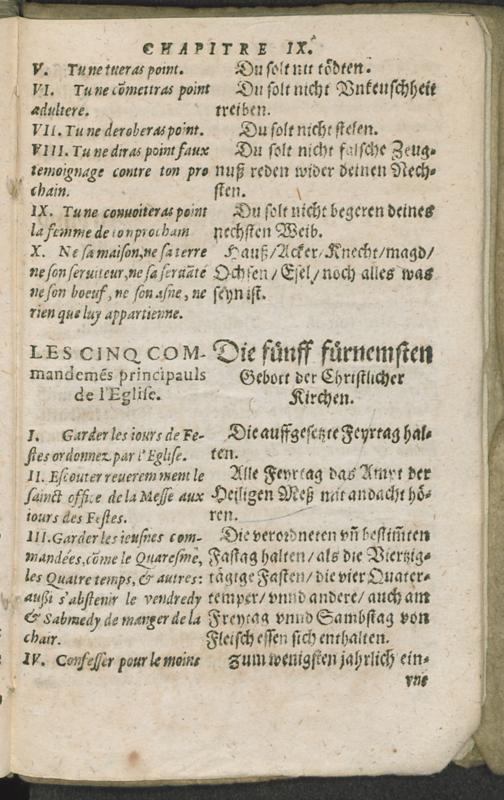 CHAPITRE IX.
V. Tu ne tueras point.
VI. Tu ne cõmettras point
adultere.
VII. Tu ne deroberas point.
VIII. Tu ne diras point faux
temoignage contre ton pro
chain.
IX. Tu ne convoiteras point
la femme de ton prochain
X. Ne sa maison, ne sa terre
ne son serviteur, ne sa servãte
ne son boeuf, ne son asne, ne
rien que luy appartienne.
LES CINQ COM-
mandemẽs principauls
de l'Eglise.
I. Garder les iours de Fe-
stes ordonnez par l'Eglise.
II. Escouter reverem ment le
sainct office de la Messe aux
iours des Festes.
III. Garder les ieusnes com-
mandées, cõme le Quaresme,
les Quatre temps, & autres:
außi s'abstenir le vendredy
& Sabmedy de manger de la
chair.
IV. Confesser pour le moins
Du solt nit tödten.
Du solt nicht Unkeuschheit
treiben.
Du solt nicht stelen.
Du solt nicht falsche Zeug-
nuß reden wider deinen Nech-
sten.
Du solt nicht begeren deines
nechsten Weib.
Hauß/Acker/Knecht/magd/
Ochsen/Esel/noch alles was
seyn ist.
Die fünff fürnemsten
Gebott der Christlicher
Kirchen.
Die auffgesetzte Feyrtag hal-
ten.
Alle Feyrtag das Ampt der
Heiligen Meß mit andacht hö-
ren.
Die verordneten vñ bestim̃ten
Fastag halten/als die Viertzig-
tägige Fasten/die vier Quater-
temper/vnnd andere/auch am
Freytag vnnd Sambstag von
Fleisch essen sich enthalten.
Zum wenigsten jahrlich ein-
vne